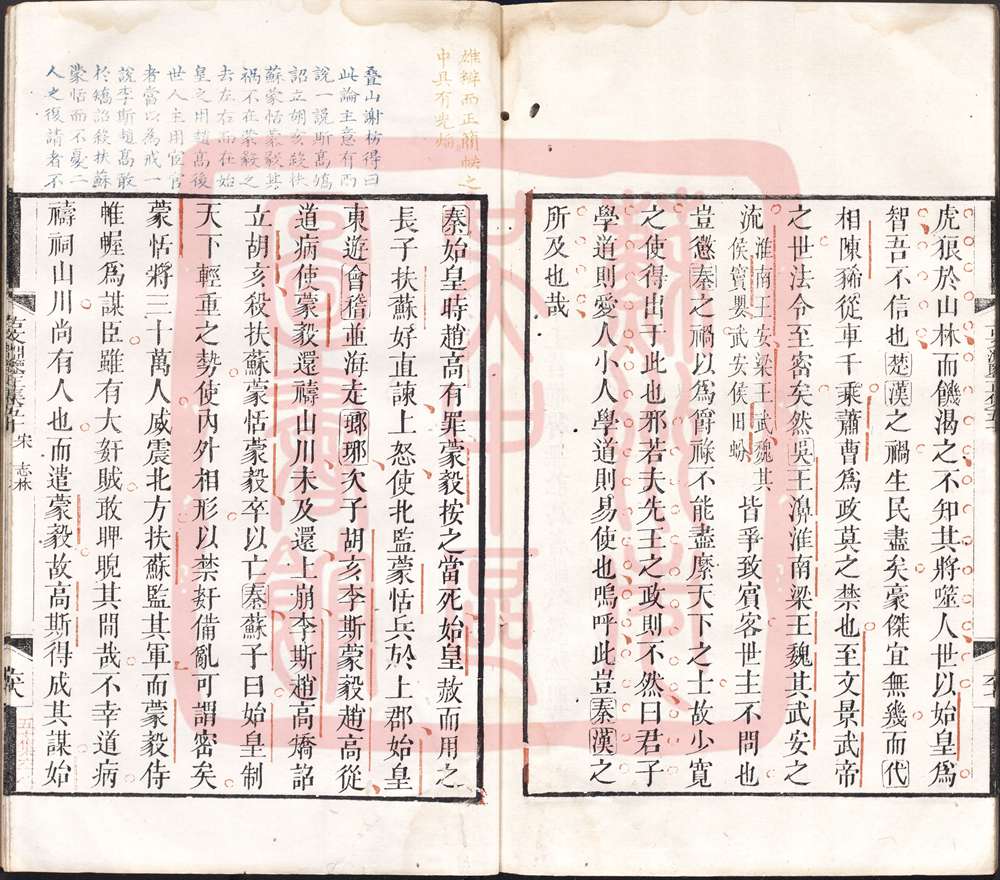 虎狼於山林而饑渴之不知其將噬人世以始皇爲
智吾不信也楚漢之禍生民盡矣豪傑宜無幾而代
相陳豨從車千乘蕭曹爲政莫之禁也至文景武帝
之世法令至密矣然吳王濞淮南梁王魏其武安之
流淮南王安梁王武魏其
侯竇嬰武安侯田蚡
皆爭致賓客世主不問也
豈懲秦之禍以爲爵祿不能盡縻天下之士故少寬
之使得出于此也邪若夫先王之政則不然曰君子
學道則愛人小人學道則易使也嗚呼此豈秦漢之
所及也哉
雄辯而正簡峽之
中具有光焰
疊山謝枋得曰
此論主意有兩
說一說斯高矯
詔立胡亥殺扶
蘇蒙恬蒙毅其
禍不在蒙毅之
去左右而在始
皇之用趙高後
世人主用宦官
者當以爲戒一
說李斯趙高敢
於矯詔殺扶蘇
蒙恬而不憂二
人之復請者不
秦始皇時趙高有罪蒙毅按之當死始皇赦而用之
長子扶蘇好直諫上怒使北監蒙恬兵於上郡始皇
東遊會稽並海走瑯琊次子胡亥李斯蒙毅趙高從
道病使蒙毅還禱山川未及還上崩李斯趙高矯詔
立胡亥殺扶蘇蒙恬蒙毅卒以亡秦蘇子曰始皇制
天下輕重之勢使內外相形以禁奸備亂可謂密矣
蒙恬將三十萬人威震北方扶蘇監其軍而蒙毅侍
帷幄爲謀臣雖有大奸賊敢睥睨其間哉不幸道病
禱祠山川尚有人也而遣蒙毅故高斯得成其謀始
宋 志林